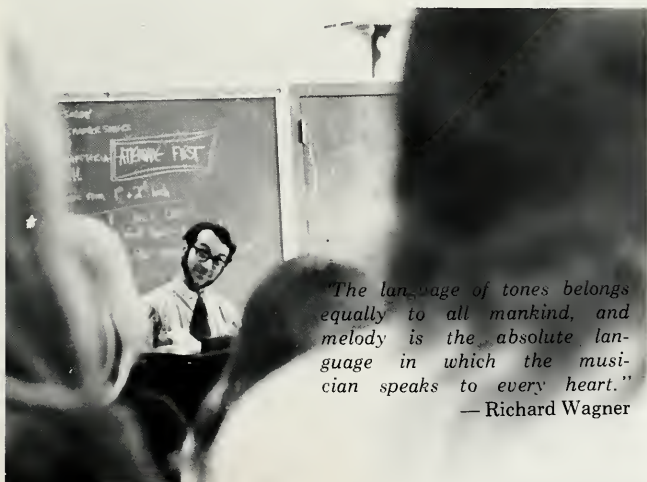 FIRST
"The language of tones belongs
equally to all mankind, and
melody is the absolute lan-
guage in which the musi-
cian speaks to every heart."
— Richard Wagner